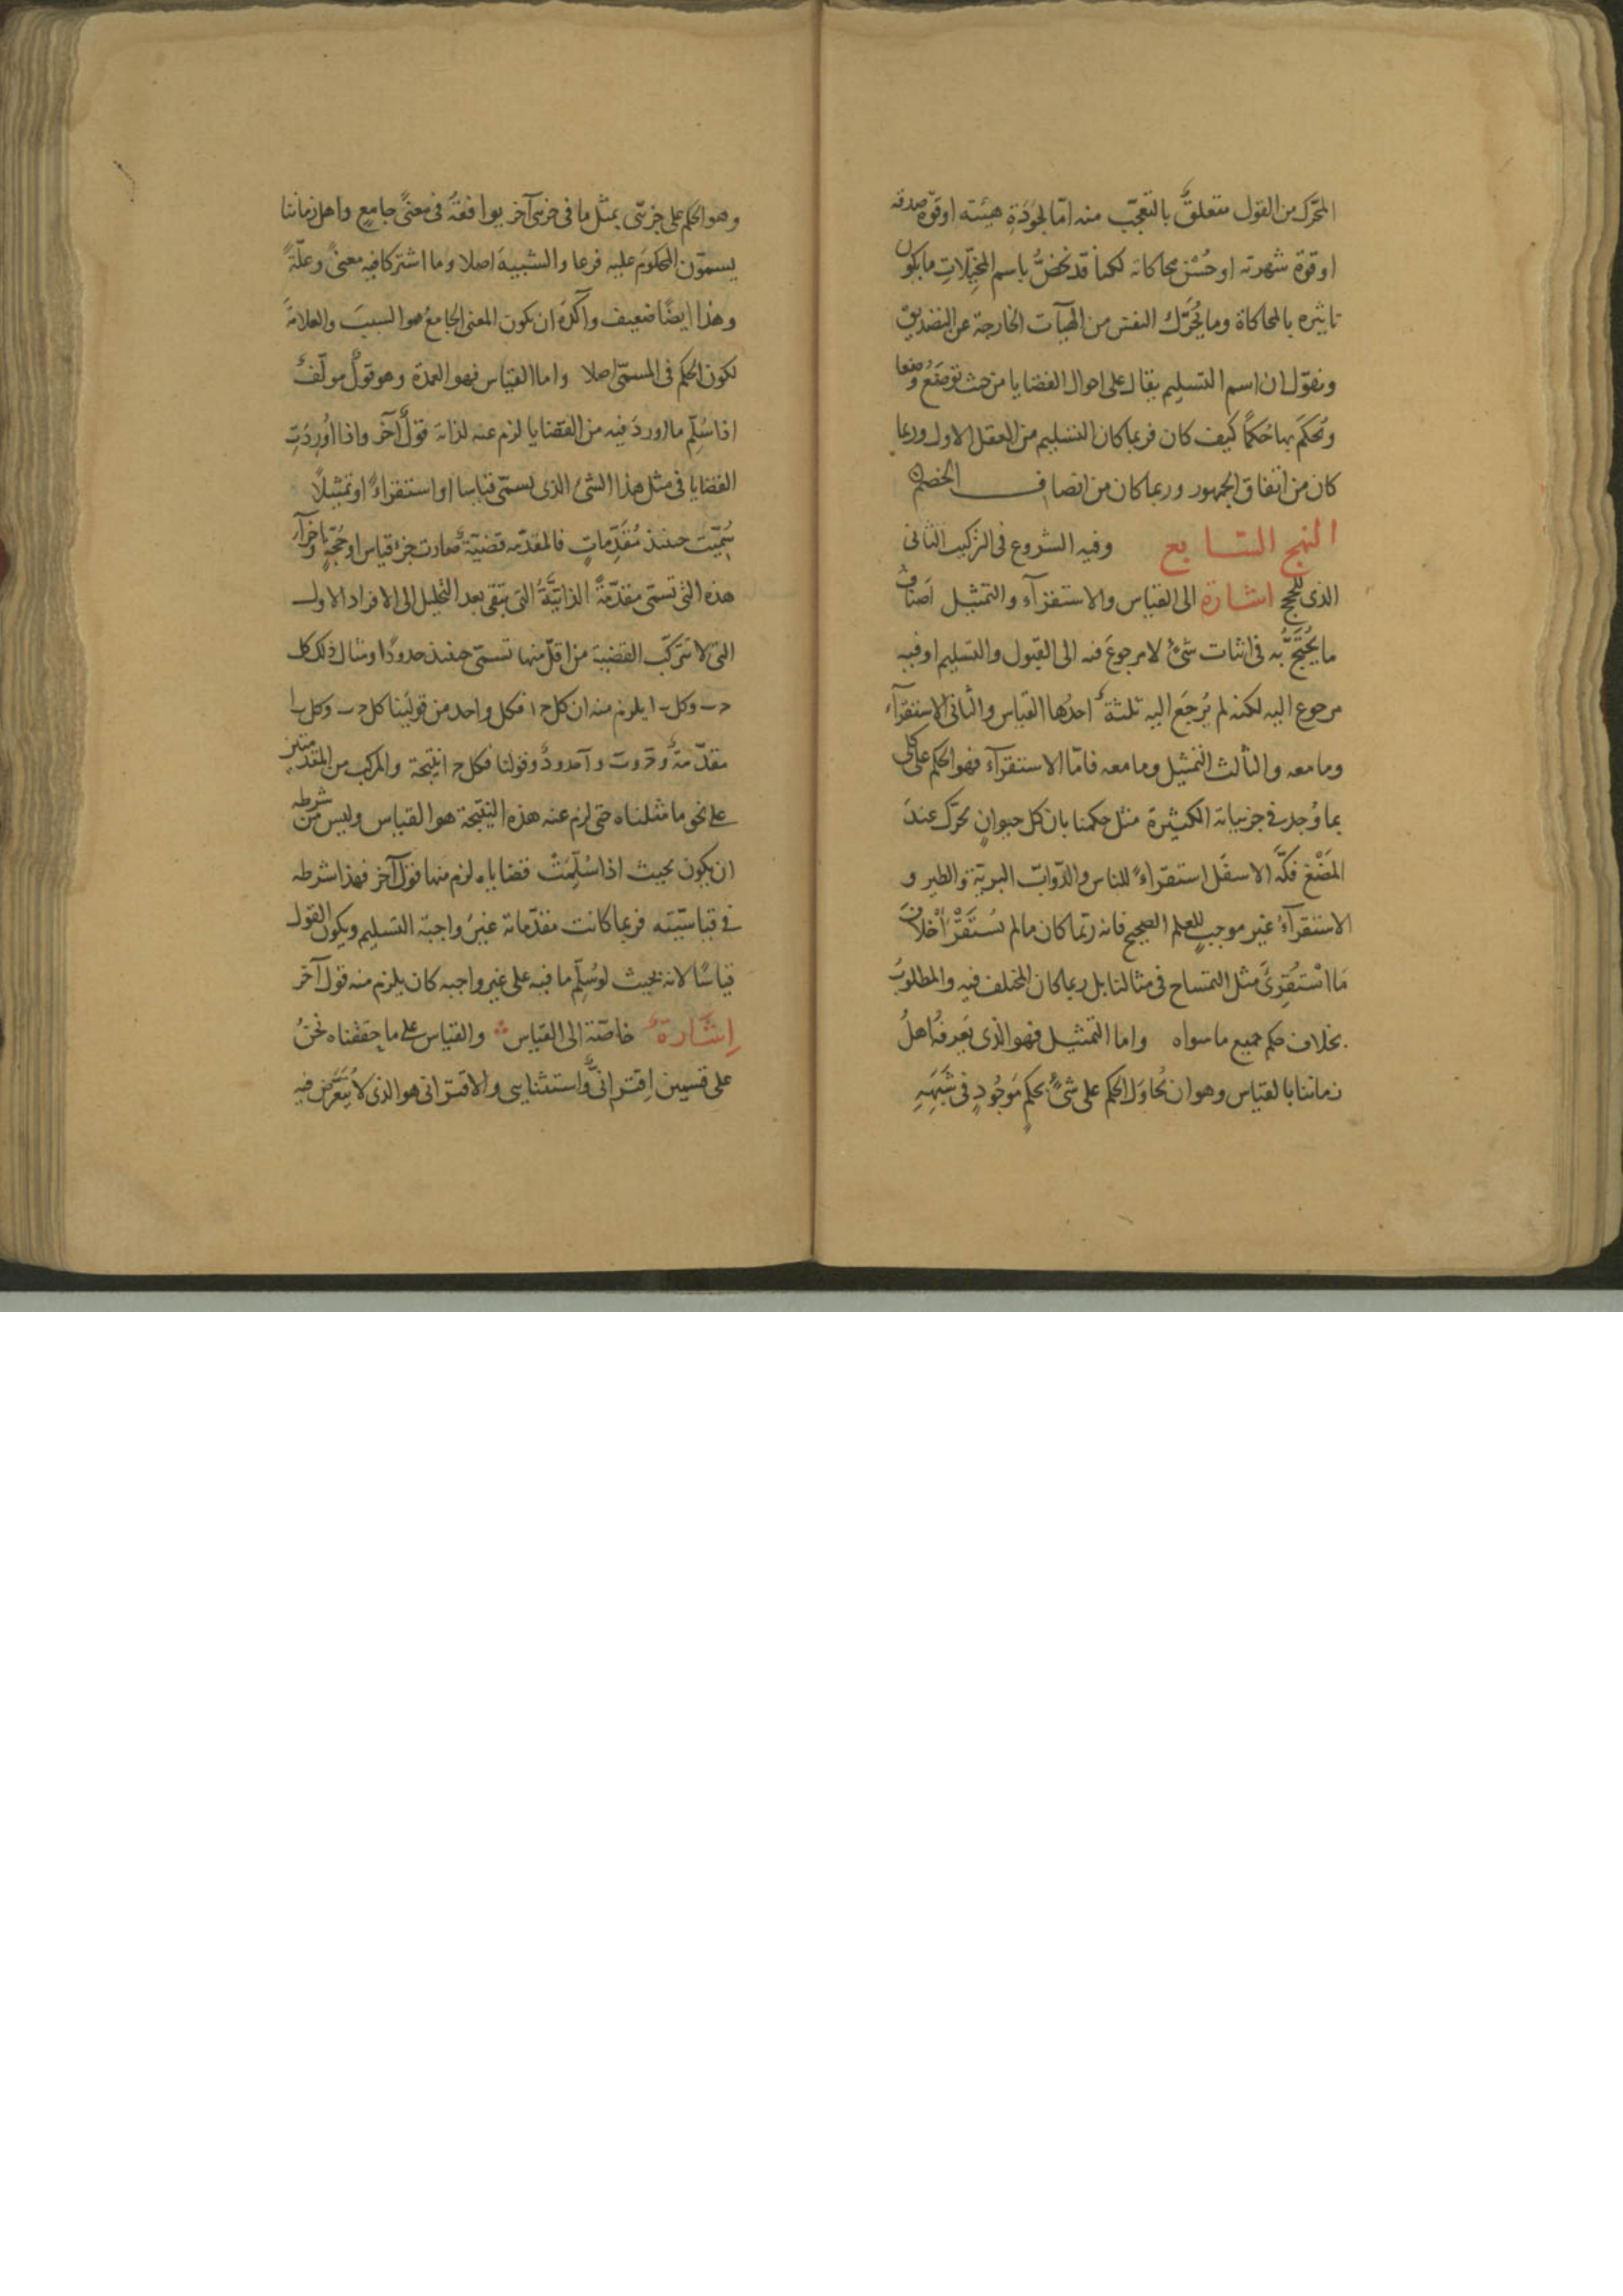 المحرّك من القول متعلقٌ بالتعجّب منه امّا لجَودَةِ هيئته او قوّة صدقه
او قوة شهرته او حُسْن محاكاته لكنا قد نخصُّ باسم المخيّلاتِ ما يكون
تاثيره بالمحاكاة وما يُحَرّك النفس من الهيآت الخارجة عن التصديق
ونقول ان اسم التسليم يقال على احوال القضايا من حيث توضَعُ وضعا
ويُحكَم بها حُكمًا كيف كان فربما كان التسليم من العقل الاول وربما
كان من اتفاق الجمهور وربما كان من انصاف الخصم
النهج السابع وفيه الشروع فى التركيب الثانى
الذى للحجج اشارة الى القياس والاستقرآء والتمثيل اَصنافُ
ما يُحتَجُّ به فى اثبات شئٍ لا مرجوعَ فيه الى القبول والتسليم او فيه
مرجوع اليه لكنه لم يُرجَع اليه ثلثةٌ احدُها القياس والثانى الاستقرآء
وما معه والثالث التمثيل وما معه فامّا الاستقرآء فهو الحكم على كلى
بما وُجد فى جزئياته الكثيرة مثل حكمنا بان كل حيوانٍ يحرّك عندَ
المَضْغ فكَّه الاسفل استقراءً للناس والدّوابّ البريّة والطير و
الاستقرآءُ غير موجبٍ للعلم الصحيح فانه ربّما كان ما لم يُستَقْرَأ خلافَ
مَا اسْتُقرِئَ مثل التمساح فى مثالنا بل ربما كان المختلف فيه والمطلوبُ
بخلاف حكم جميع ما سواه واما التمثيل فهو الذى يَعرفُه اهلُ
زماننا بالقياس وهو ان يُحاوَل الحكم على شئٍ بحكمٍ مَوجُودٍ فى شَبَهِهِ
وهو الحكم على جزئى بمثل ما فى جزئى آخر يوافقُه فى معنًى جامعٍ واهل زماننا
يسمّون المحكومَ عليه فرعا والشبيهَ اصلا وما اشتركا فيه معنًى وعلّةً
وهذا ايضًا ضعيف وآكَدُه ان يكون المعنى الجامعُ هو السببَ والعلامةَ
لكون الحكم فى المسمّى اصلا واما القياس فهو العمدة وهو قولٌ مولّفٌ
اذا سُلّم ما اوردَ فيه من القضايا لزم عنه لذاته قولٌ آخَر واذا اُورِدَتِ
القضايا فى مثل هذا الشئ الذى يسمّى قياسا او استقراءً او تمثيلًا
سُمّيَت حينئذ مُقَدّماتٍ فالمقدّمه قضيّةٌ صارت جزءَ قياسٍ او حُجّةٍ واجزآء
هذه التى تسمّى مقدّمةً الذاتيّةُ التى تبقى بعد التحليل الى الافراد الاول
التى لا تتركّب القضية من اقلّ منها تسمّى حينئذ حدودًا ومثال ذلك كل
ح ب وكل ب ا يلزم منه ان كل ح ا فكل واحد من قولَينا كل ح ب وكل ب ا
مقدّمةٌ وح وب وا حدودٌ وقولنا فكل ح ا نتيجة والمركب من المقدّمتين
على نحو ما مثلناه حتى لزم عنه هذه النتيجة هو القياس وليس من شرطه
ان يكون بحيث اذا سُلِّمَتْ قضاياه لزم منها قولٌ آخر فهذا شرطه
فى قياسيّته فربما كانت مقدّماته غيرَ واجبة التسليم ويكون القول
قياسًا لانه بحيث لو سُلّم ما فيه على غير واجبه كان يلزم منه قول آخر
اِشَارةٌ خاصّة الى القياس والقياس على ما حققناه نحنُ
على قسمين اِقترانىٌّ واستثنايى والاقترانى هو الذى لا يُتَعرّض فيه